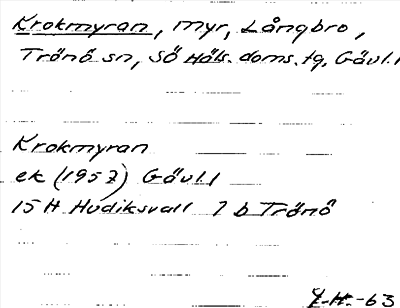 Krokmyran, myr, Långbro,
Trönö sn, Sö Häls. doms. tg, Gävl. l
Krokmyran
ek (1957) Gävl. l
15 H Hudiksvall 7 b Trönö
-63